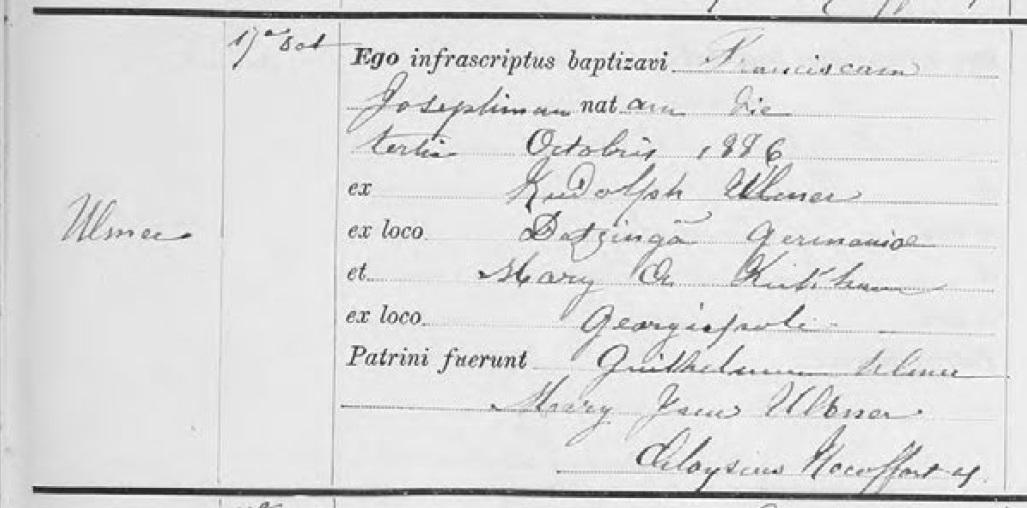 17ª Oct
Ego infrascriptus baptizavi Franciscam
Josephinam natam die
tertia Octobris 1886
ex Rudolph Ulmer
Ulmer
ex loco Datzingä Germaniae
et Mary A Kirkham
ex loco Georgiopoli
Patrini fuerunt Guilhelmum Ulmer
Mary Jane Ulmer
Aloysius Rocoffort sj.